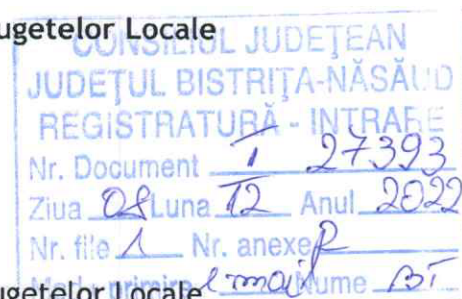 ugetelor Locale
CONSILIUL JUDEŢEAN
JUDEŢUL BISTRIŢA-NĂSĂUD
REGISTRATURĂ - INTRARE
Nr. Document I 27393
Ziua 08 Luna 12 Anul 2022
Nr. file 1 Nr. anexe
Mod primire email Nume BT
ugetelor Locale